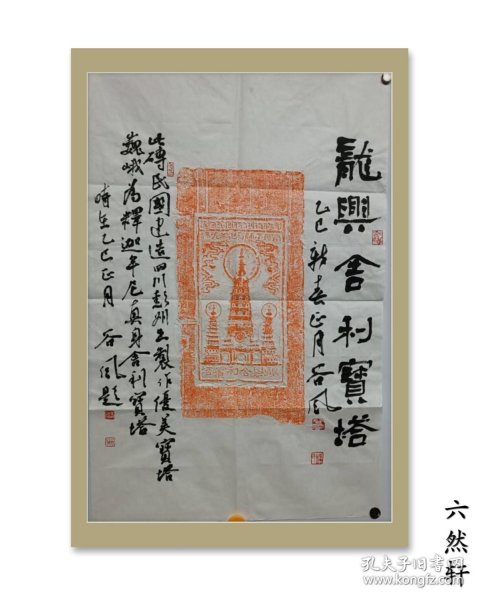 龍興舍利寶塔
乙巳新春正月谷風
此磚民國建造四川彭州工製作優美寶塔
巍峨為釋迦牟尼真身舍利寶塔
時在乙巳正月 谷風信題
六然轩
孔夫子旧书网
www.kongfz.com